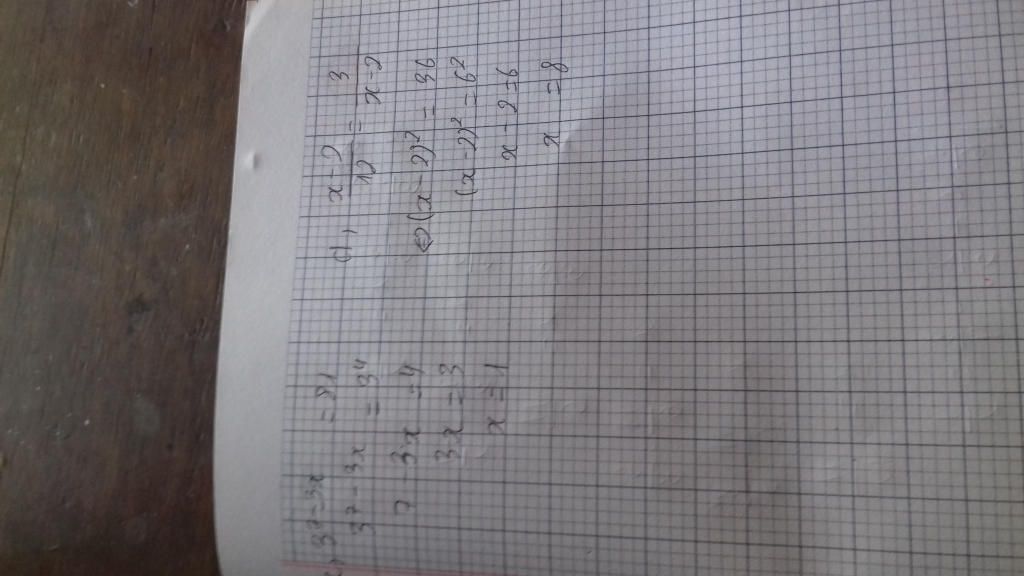 c) 3^{7-3x} = 81
3^{7-3x} = 3^4
7 - 3x = 4
3x = 3
x = 1
d, \frac{x-2}{12} = \frac{3}{x-2}
⇔ (x-2)^2 = 36
(x-2)^2 = 6^2
x - 2 = 6
x = 8